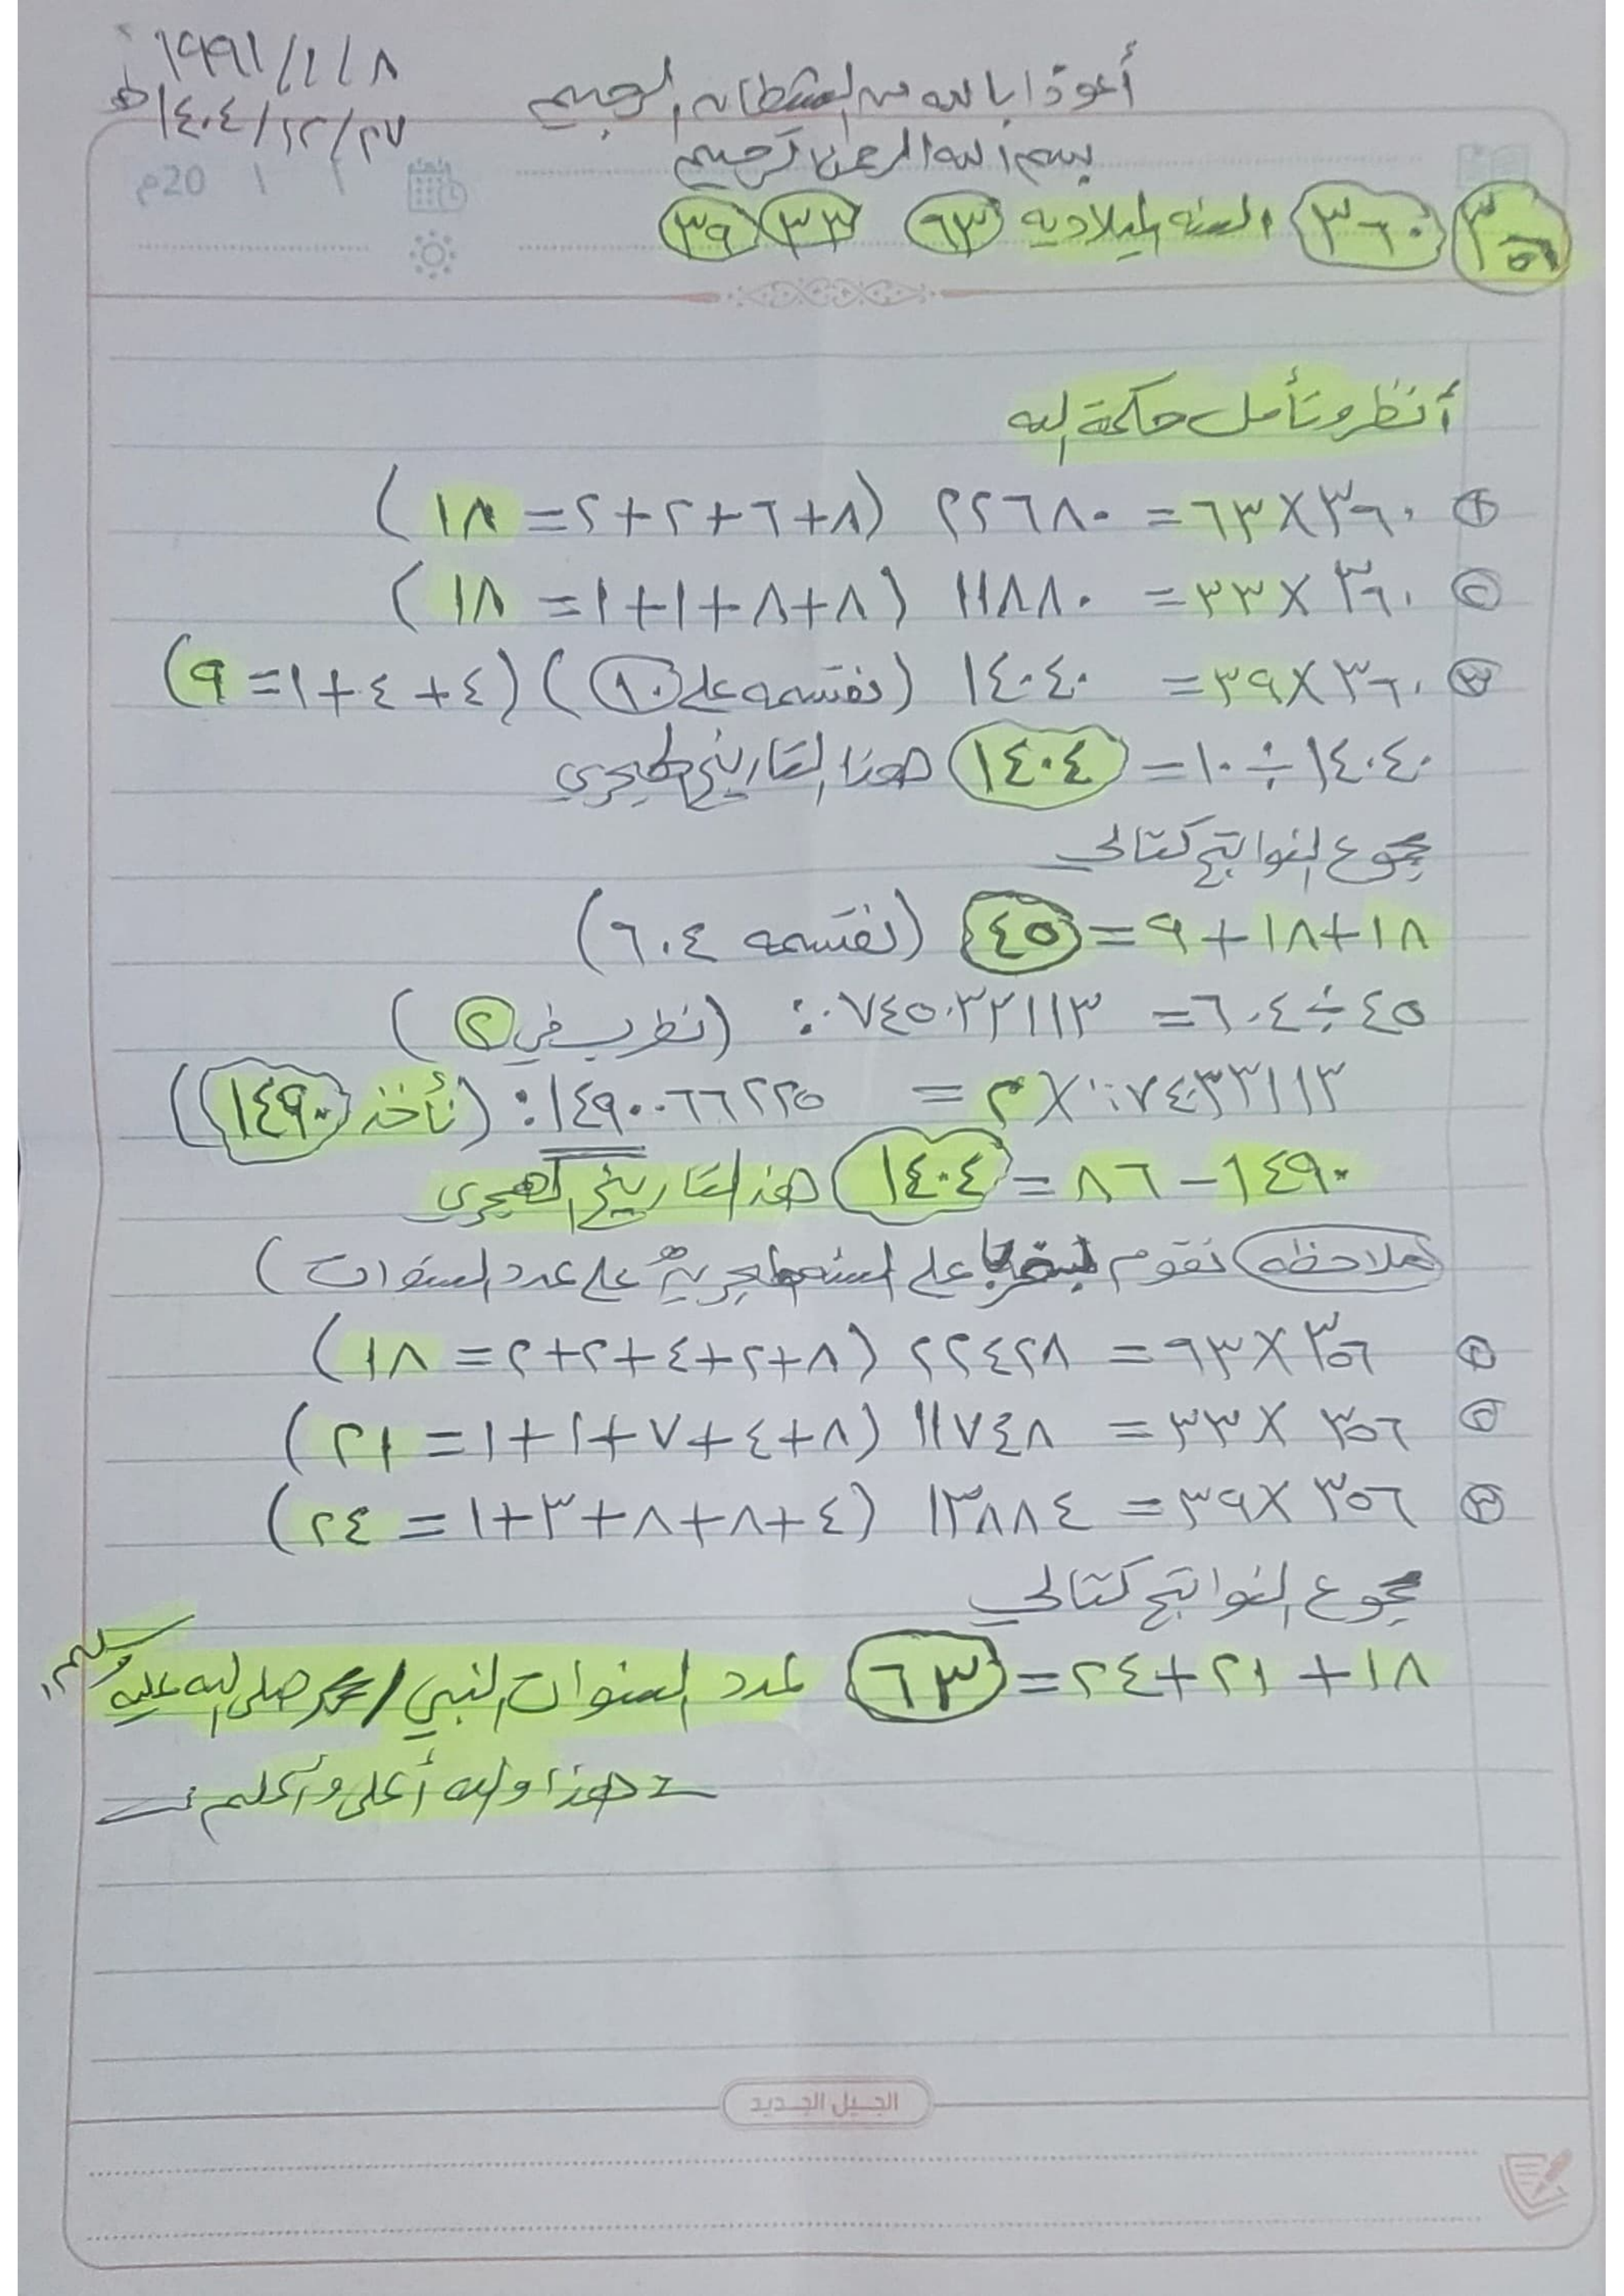 ١٩٩١/١/٨
١٤٠٤/١٢/٢٧ هـ
أعوذ بالله من الشيطان الرجيم
بسم الله الرحمن الرحيم
20م / /
٣٥٦ ٣٦٠ السنه الميلاديه ٦٣ ٣٣ ٣٩
أنظر وتأمل حكمة الله
١ ٣٦٠ × ٦٣ = ٢٢٦٨٠ (٨+٦+٢+٢=١٨)
٢ ٣٦٠ × ٣٣ = ١١٨٨٠ (٨+٨+١+١=١٨)
٣ ٣٦٠ × ٣٩ = ١٤٠٤٠ (نقسمه على ١٠) (٤+٤+١=٩)
١٤٠٤٠ ÷ ١٠ = ١٤٠٤ هذا التاريخ الهجري
مجموع النواتج كتالي
١٨+١٨+٩=٤٥ (نقسمه ٦٠٤)
٤٥÷٦٠٤= ٠٧٤٥٠٣٣١١٣: (نظرب في ٢)
٠٧٤٣٣١١٣: × ٢ = ١٤٩٠٠٦٦٢٢٥: (نأخذ ١٤٩٠)
١٤٩٠ − ٨٦ = ١٤٠٤ هذا التاريخ الهجري
ملاحظه نقوم على السنه الهجرية على عدد السنوات)
١ ٣٥٦ × ٦٣ = ٢٢٤٢٨ (٨+٢+٤+٢+٢=١٨)
٢ ٣٥٦ × ٣٣ = ١١٧٤٨ (٨+٤+٧+١+١=٢١)
٣ ٣٥٦ × ٣٩ = ١٣٨٨٤ (٤+٨+٨+٣+١=٢٤)
مجموع النواتج كتالي
١٨+٢١+٢٤=٦٣ لعدد السنوات النبي / محمد صلى الله عليه وسلم
هذا والله أعلى وأعلم
الجيل الجديد